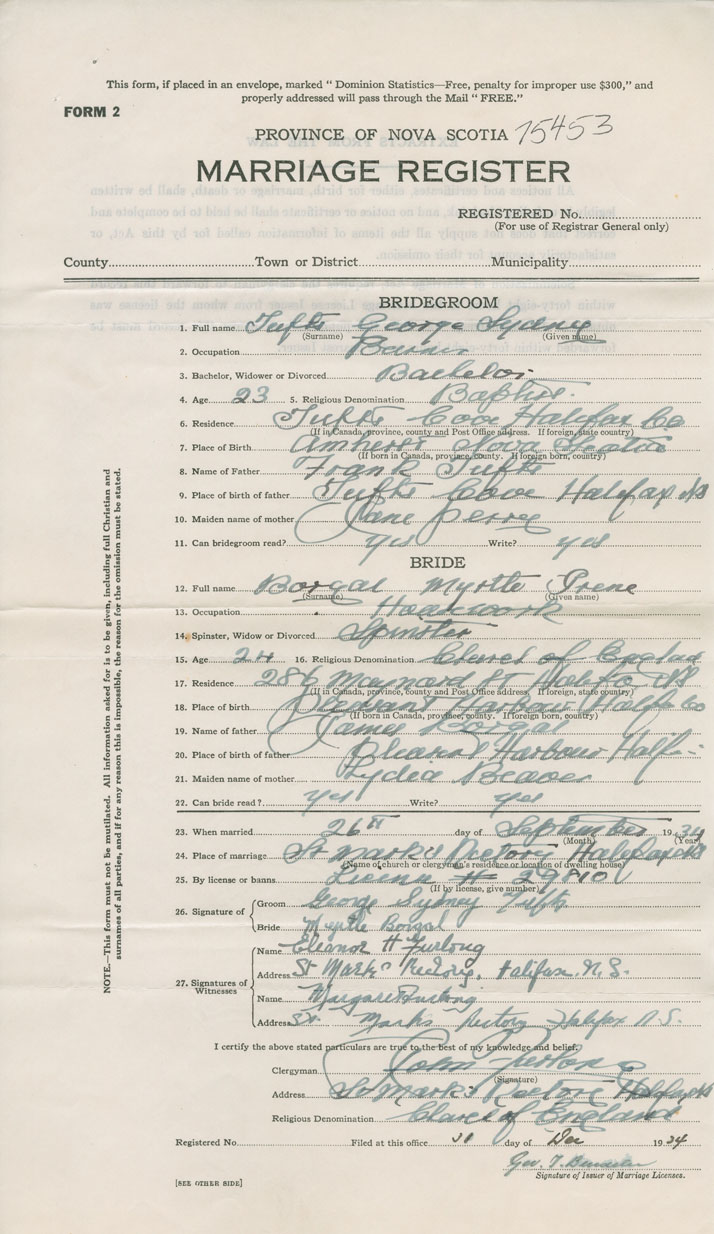 This form, if placed in an envelope, marked "Dominion Statistics—Free, penalty for improper use $300," and
properly addressed will pass through the Mail "FREE."
FORM 2
PROVINCE OF NOVA SCOTIA 15453
MARRIAGE REGISTER
REGISTERED No.
(For use of Registrar General only)
County Town or District Municipality
BRIDEGROOM
1. Full name Tufts George Sydney
(Surname) (Given name)
2. Occupation
3. Bachelor, Widower or Divorced Bachelor
4. Age 23 5. Religious Denomination Baptist
6. Residence Tufts Cove Halifax Co
(If in Canada, province, county and Post Office address. If foreign, state country)
7. Place of Birth Amherst Nova Scotia
(If born in Canada, province, county. If foreign born, country)
8. Name of Father Frank Tufts
9. Place of birth of father Tufts Cove Halifax NS
10. Maiden name of mother Jane Perry
11. Can bridegroom read? yes Write? yes
BRIDE
12. Full name Borgal Myrtle Irene
(Surname) (Given name)
13. Occupation Housework
14. Spinster, Widow or Divorced Spinster
15. Age 24 16. Religious Denomination Church of England
17. Residence 286 Maynard St Halifax NS
(If in Canada, province, county and Post Office address. If foreign, state country)
18. Place of birth Pleasant Harbour Halifax Co
(If born in Canada, province, county. If foreign born, country)
19. Name of father James Borgal
20. Place of birth of father Pleasant Harbour Halifx
21. Maiden name of mother Lydia Beaver
22. Can bride read? yes Write? yes
23. When married 26th day of September 1934
(Month) (Year)
24. Place of marriage St Mark's Rectory Halifax NS
(Name of church or clergyman's residence or location of dwelling house)
25. By license or banns License #
(If by license, give number)
26. Signature of Groom George Sydney Tufts
Bride Myrtle Borgal
27. Signatures of Witnesses
Name Eleanor H Furlong
Address St Mark's Rectory, Halifax, N.S.
Name Margaret Furlong
Address St. Marks Rectory Halifax N.S.
I certify the above stated particulars are true to the best of my knowledge and belief.
Clergyman John Furlong
(Signature)
Address St Mark's Rectory Halifax NS
Religious Denomination Church of England
Registered No. Filed at this office 31 day of Dec 1934
Geo. T.
Signature of Issuer of Marriage Licenses.
[SEE OTHER SIDE]
NOTE.—This form must not be mutilated. All information asked for is to be given, including full Christian and
surnames of all parties, and if for any reason this is impossible, the reason for the omission must be stated.